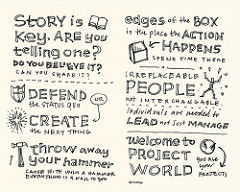 STORY is
Key. ARE YOU
telling one?
DO YOU BELIEVE IT?
CAN YOU SHARE IT?
DEFEND
the STATUS QUO
OR
CREATE
the NEXT THING
throw away
your hammer
CAUSE WITH ONLY A HAMMER
EVERYTHING IS A NAIL TO YOU
edges of the BOX
is the place the ACTION
HAPPENS
SPEND TIME THERE
IRREPLACEABLE
PEOPLE
NOT INTERCHANGABLE.
Individuals are needed to
LEAD not just MANAGE
Welcome to
PROJECT
WORLD
YOU ARE
YOUR
PROJECTS